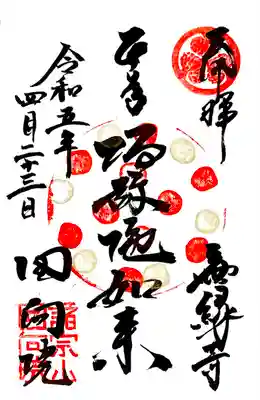 奉拝
無縁寺
本尊
阿弥陀如来
回向院
令和五年
四月二十三日